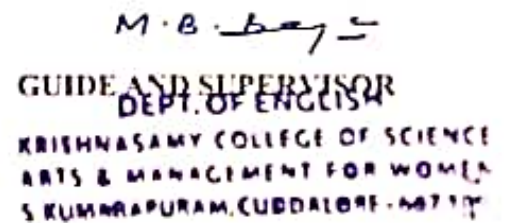 M. B.
GUIDE AND SUPERVISOR
DEPT. OF ENGLISH
KRISHNASAMY COLLEGE OF SCIENCE
ARTS & MANAGEMENT FOR WOMEN
S KUMARAPURAM, CUDDALORE -